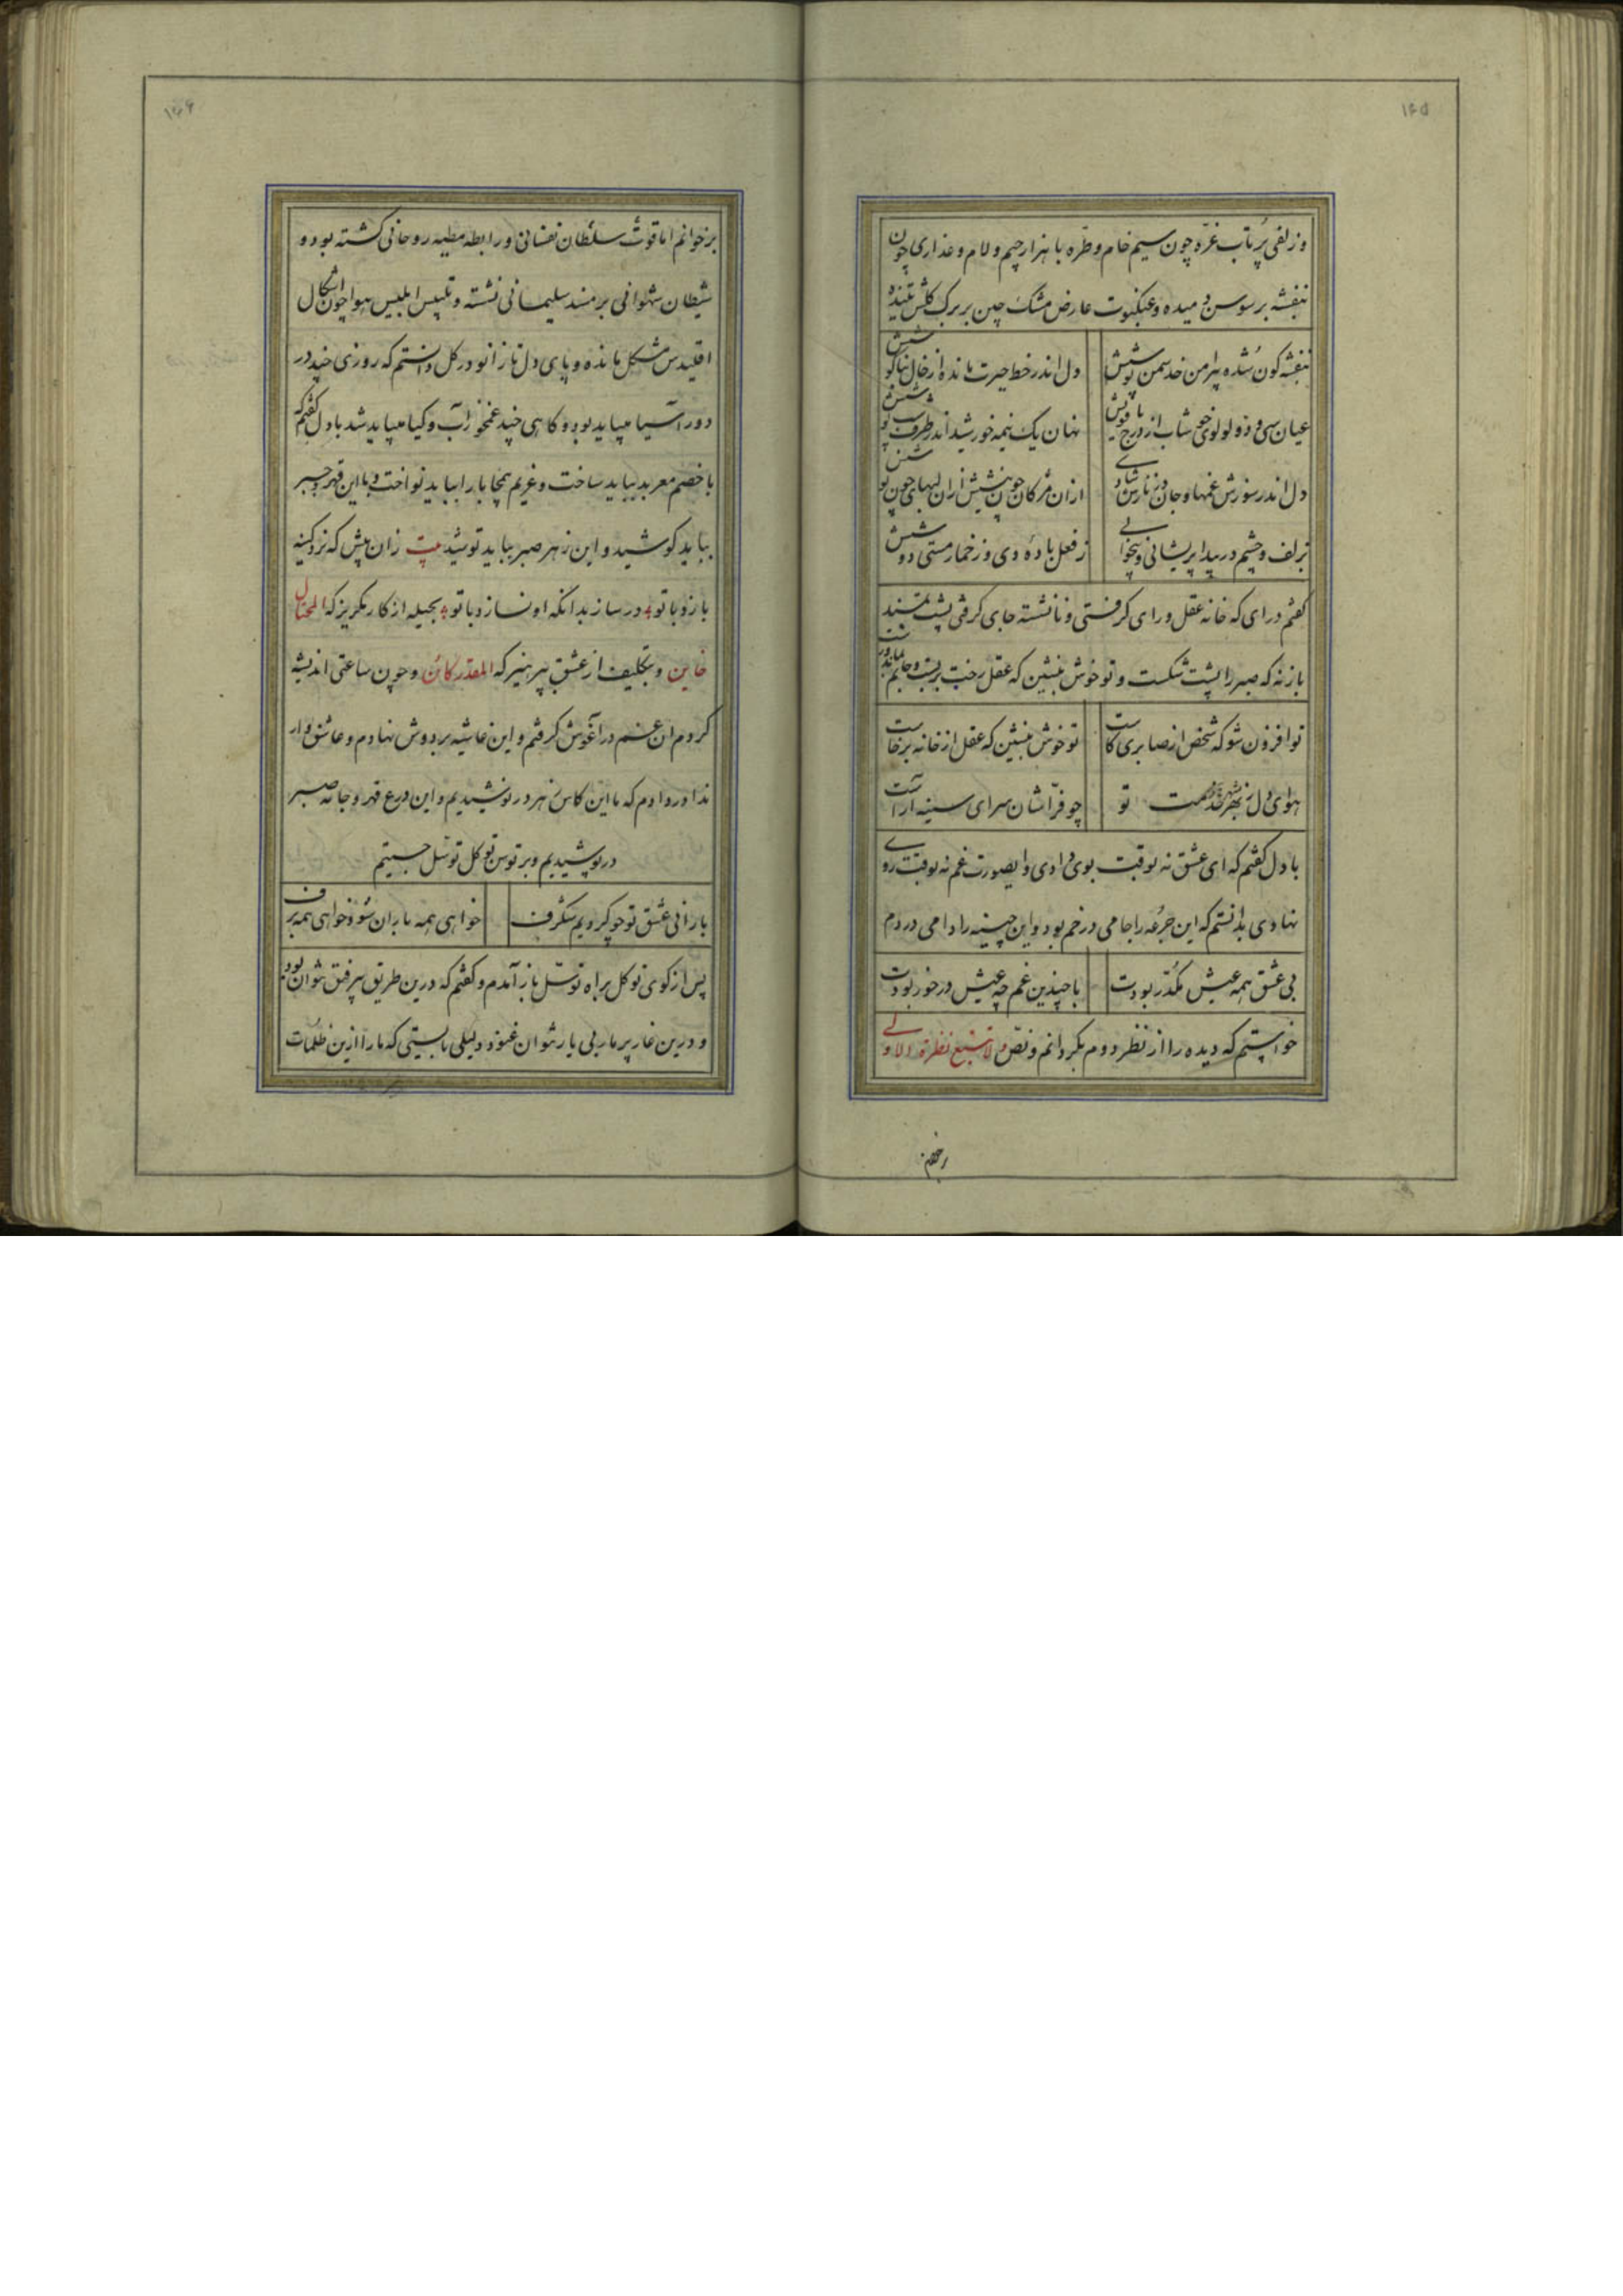 ۱۶۵
وزلفی پرتاب غرّه چون سیم خام و طرّه با هزار جیم و لام و عذاری چون
بنفشه بر سوسن دمیده و عنکبوت عارض مشک چین بر برک کلش تنیده
بنفشه کون شده پیرامن خد سمن پوشش دل اندر خط حیرت مانده از خال بناکوشش
عیان سی و دو لولوی خوشاب از درج یاقوتش نهان یک نیمه خورشید اندر طرف
دل اندر سوزش غمها و جان در نازش شادی ازان مژکان چون نیشش ازان لبهای چون نوشش
بزلف و چشم در پیدا پریشانی و بیخوابی ز فعل باده دی وز خمار مستی دوشش
کفتم درای که خانه عقل و رای کرفتی و نانشسته جای کرفتی پشت بمسند
بازنه که صبر را پشت شکست و تو خوش بنشین که عقل رخت بربست و
تو افزون شو که شخص از صابری کاست تو خوش بنشین که عقل از خانه برخاست
هوای دل ز بهر خدمت تو چو فرّاشان سرای سینه آراست
با دل کفتم که ای عشق نه بوقت بوی دادی و ای صورت غم نه بوقت روی
نهادی بدانستم که این جرعه را جامی در خم بود و این چینه را دامی در دم
بی عشق همه عیش مکدّر بودت با چندین غم چه عیش درخور بودت
خواستم که دیده را از نظر دوم بکردانم و نصّ و لا تتبع نظرة الاولی
۱۶۶
برخوانم اما قوت سلطان نفسانی و رابطه مطیه روحانی کشته بود و
شیطان شهوانی بر مسند سلیمانی نشسته و تلبیس ابلیس هوا چون اشکال
اقلیدس مشکل مانده و پای دل تا زانو در کل دانستم که روزی چند در
دور آسیا میباید بود و کاهی چند غمخوز آب و کیا میباید شد با دل کفتم که
با خصم معربد بباید ساخت و غریم بمحابا را بباید نواخت و با این قهر و جبر
بباید کوشید و این زهر صبر بباید نوشید بیت زان پیش که نرد کینه
بازد با تو در ساز بدانکه او نسازد با تو بحیله از کار مکریز که المحتال
خاین و بتکلیف از عشق بپرهیز که المقدر کائن و چون ساعتی اندیشه
کردم ان غم در آغوش کرفتم و این غاشیه بر دوش نهادم و عاشق وار
ندا در دادم که ما این کاس زهر در نوشیدیم و این درع قهر و جامه صبر
در پوشیدیم و بر توسن توکل توسل جستیم
با رانی عشق تو چو کردیم شکرف خواهی همه باران شو و خواهی همه برف
پس از کوی توکل براه توسّل باز آمدم و کفتم که درین طریق بیرفق نتوان بود
و درین غار پر مار بی یار نتوان غنود و دلیلی بایستی که ما را ازین ظلمات